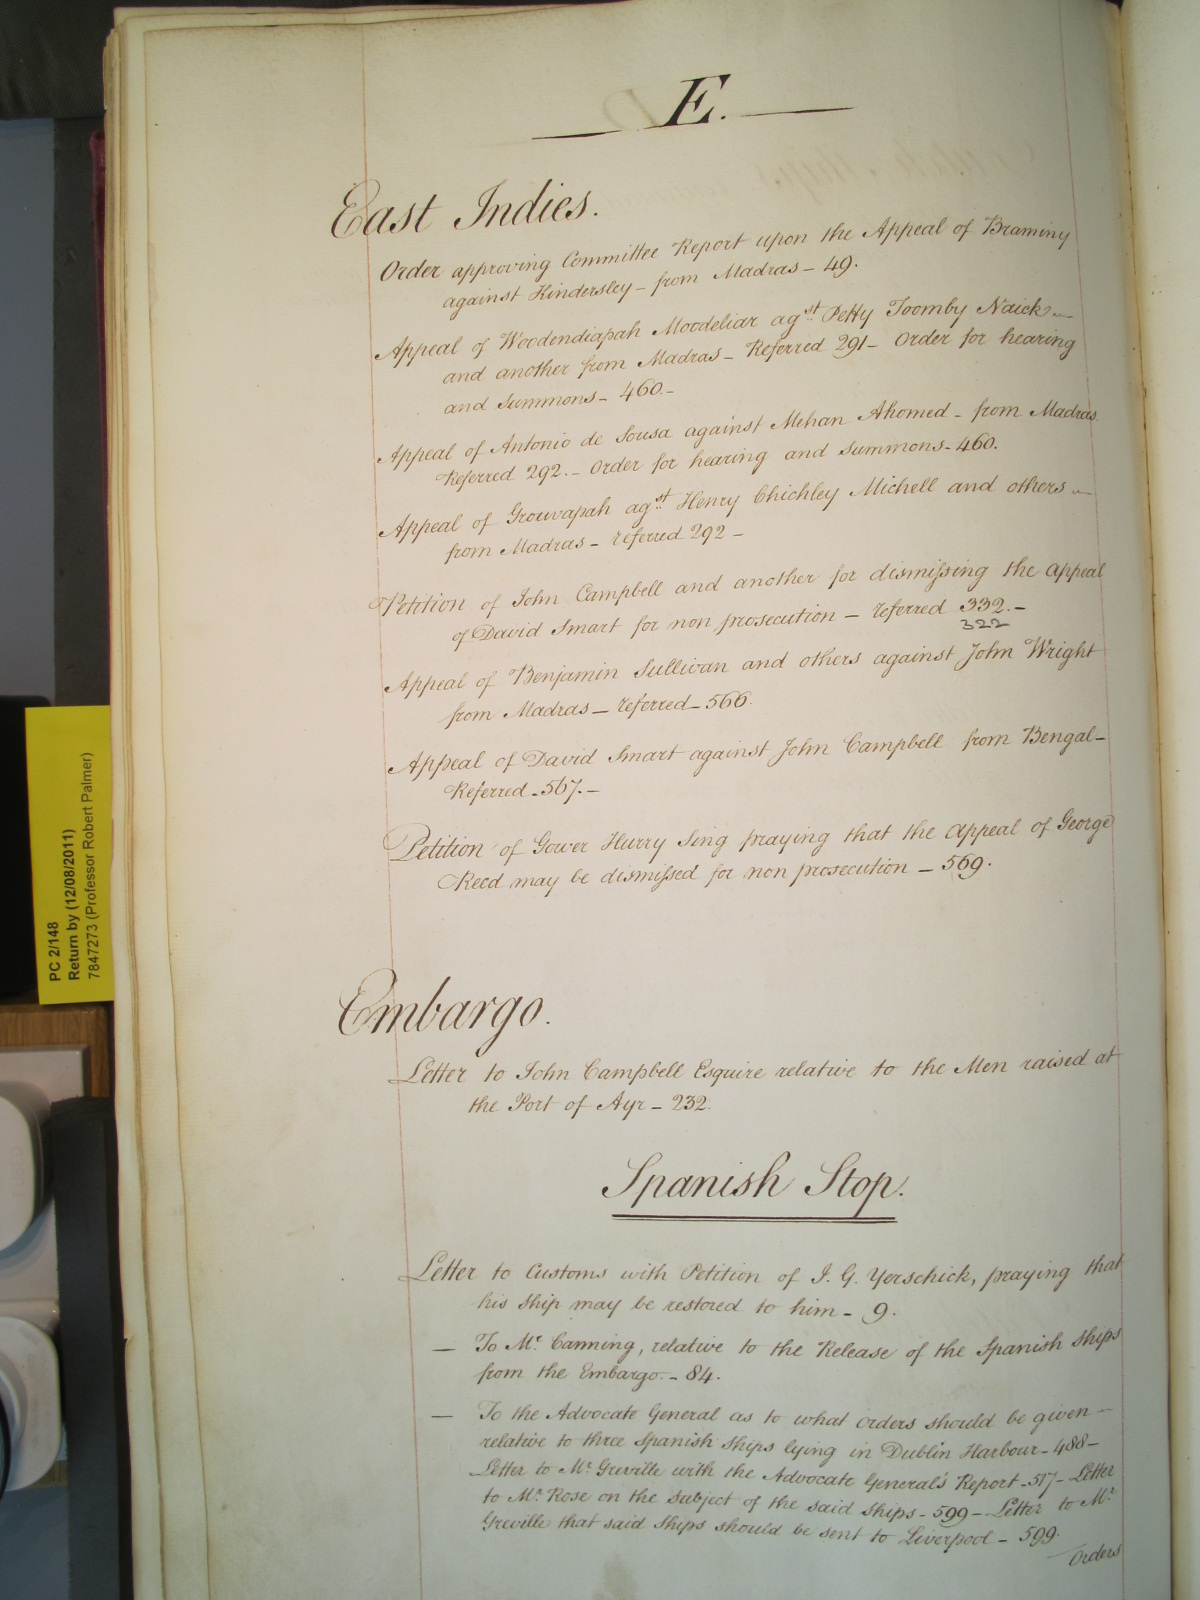 E.
East Indies.
Order approving Committee Report upon the Appeal of Braminy
against Kindersley - from Madras - 49.
Appeal of Woodendiapah Moodeliar agst. Petty Toomby Naick -
and another from Madras - Referred 291 - Order for hearing
and Summons - 460. -
Appeal of Antonio de Sousa against Mehan Ahomed - from Madras
Referred 292. - Order for hearing and Summons - 460.
Appeal of Grouvapah agst. Henry Chichley Michell and others -
from Madras - referred 292 -
Petition of John Campbell and another for dismissing the Appeal
of David Smart for non prosecution - referred 332. -
322
Appeal of Benjamin Sullivan and others against John Wright
from Madras - referred - 566.
Appeal of David Smart against John Campbell from Bengal -
Referred - 567. -
Petition of Gower Hurry Sing praying that the Appeal of George
Reed may be dismissed for non prosecution - 569.
Embargo.
Letter to John Campbell Esquire relative to the Men raised at
the Port of Ayr - 232.
Spanish Stop.
Letter to Customs with Petition of I. G. Yerschick, praying that
his ship may be restored to him - 9.
— To Mr. Canning, relative to the Release of the Spanish Ships
from the Embargo. - 84.
— To the Advocate General as to what orders should be given -
relative to three Spanish Ships lying in Dublin Harbour - 488 -
Letter to Mr. Greville with the Advocate General's Report - 517 - Letter
to Mr. Rose on the Subject of the said Ships - 599 - Letter to Mr.
Greville that said Ships should be sent to Liverpool - 599.
Orders
PC 2/148
Return by (12/08/2011)
7847273 (Professor Robert Palmer)